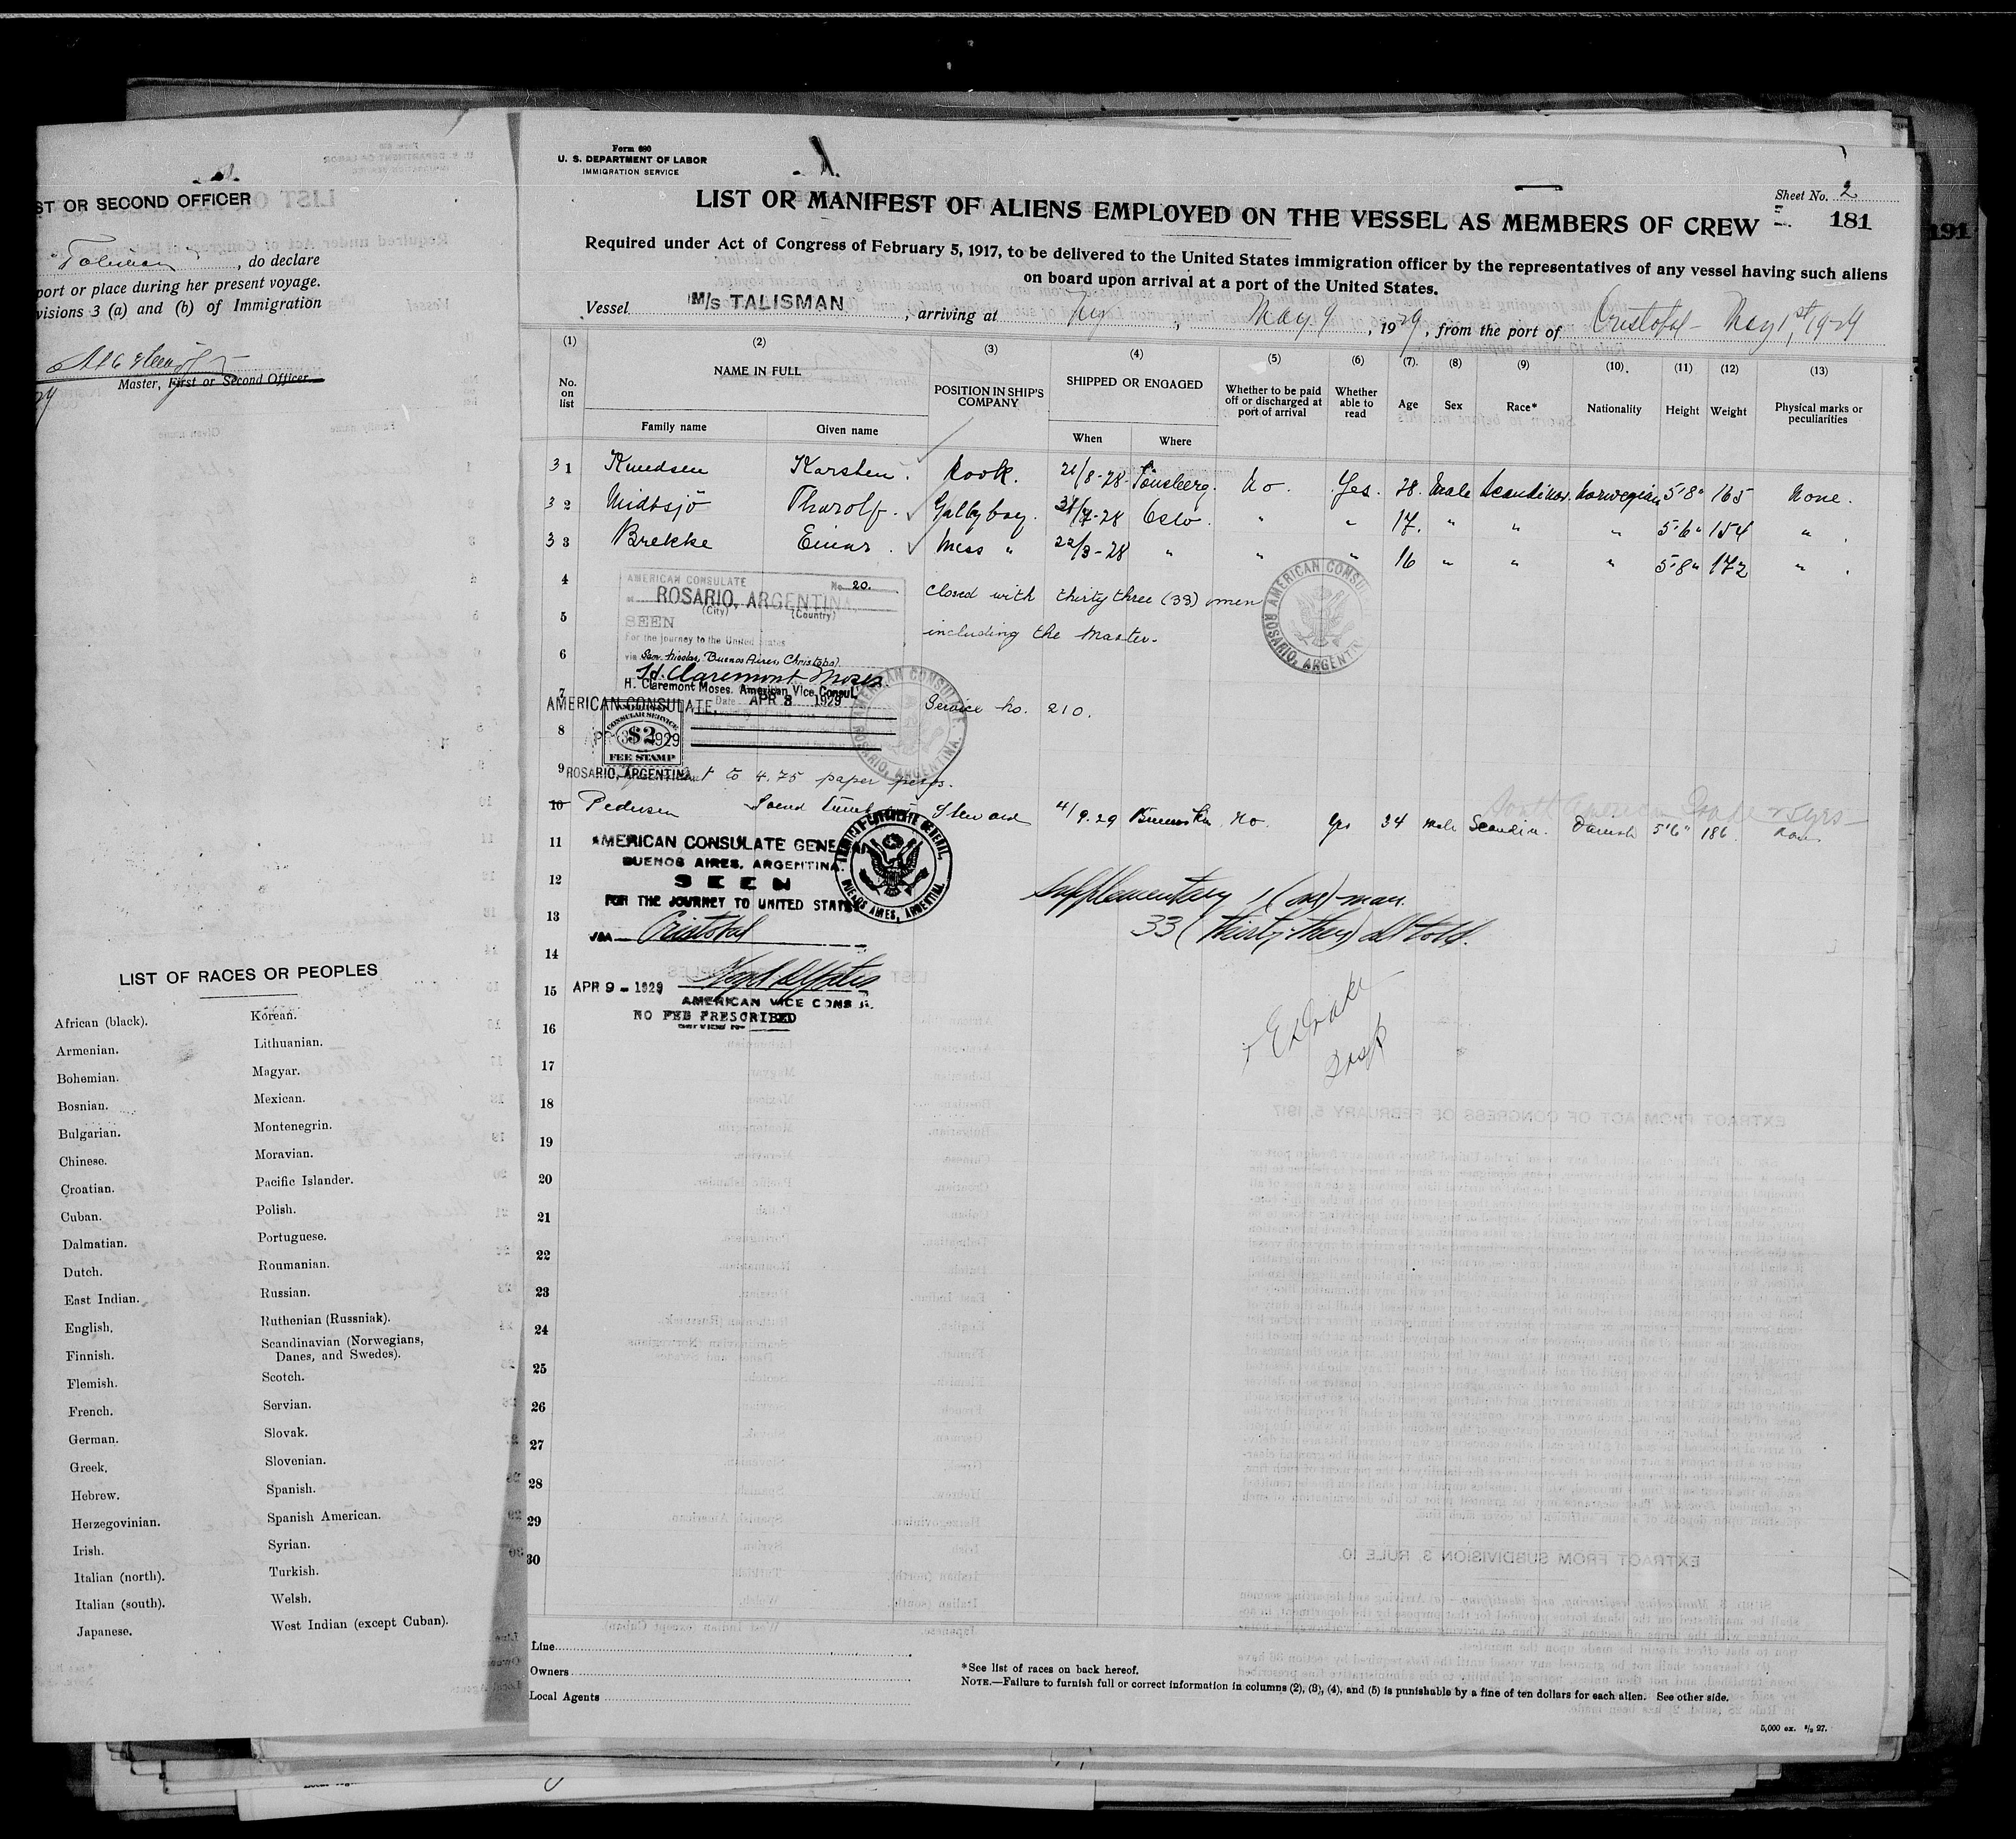 ST OR SECOND OFFICER
Talisman, do declare
port or place during her present voyage.
visions 3 (a) and (b) of Immigration
Master, First or Second Officer
LIST OF RACES OR PEOPLES
African (black). Korean.
Armenian. Lithuanian.
Bohemian. Magyar.
Bosnian. Mexican.
Bulgarian. Montenegrin.
Chinese. Moravian.
Croatian. Pacific Islander.
Cuban. Polish.
Dalmatian. Portuguese.
Dutch. Roumanian.
East Indian. Russian.
English. Ruthenian (Russniak).
Finnish. Scandinavian (Norwegians,
Danes, and Swedes).
Flemish. Scotch.
French. Servian.
German. Slovak.
Greek. Slovenian.
Hebrew. Spanish.
Herzegovinian. Spanish American.
Irish. Syrian.
Italian (north). Turkish.
Italian (south). Welsh.
Japanese. West Indian (except Cuban).
Form 680
U. S. DEPARTMENT OF LABOR
IMMIGRATION SERVICE
Sheet No. 2
LIST OR MANIFEST OF ALIENS EMPLOYED ON THE VESSEL AS MEMBERS OF CREW 181
191
Required under Act of Congress of February 5, 1917, to be delivered to the United States immigration officer by the representatives of any vessel having such aliens
on board upon arrival at a port of the United States.
Vessel M/s TALISMAN, arriving at Ny, May 9, 1929, from the port of Cristobal - May 1st, 1929
(1) (2) (3) (4) (5) (6) (7) (8) (9) (10) (11) (12) (13)
No. on list
NAME IN FULL
Family name Given name
POSITION IN SHIP'S COMPANY
SHIPPED OR ENGAGED
When Where
Whether to be paid off or discharged at port of arrival
Whether able to read
Age Sex Race* Nationality Height Weight
Physical marks or peculiarities
31 Knudsen Karsten. Kook. 21/8-28 Tönsberg. No. Yes. 28. Male Scandinav. Norwegian 5'8" 165 None.
32 Midtsjö Thorolf. Galley boy. 31/7-28 Oslo. " " 17. " " " 5'6" 154 " .
33 Brekke Einar. Mess " 22/3-28 " " " 16 " " " 5'8" 172 " .
4 closed with thirty three (33) men
5 including the Master.
6
7 Service No. 210.
8
AMERICAN CONSULATE No. 20.
at ROSARIO, ARGENTINA
(City) (Country)
SEEN
For the journey to the United States
via San Nicolas, Buenos Aires, Christobal
H. Claremont Moses
H. Claremont Moses. American Vice Consul.
Date APR 3 1929
AMERICAN CONSULATE,
CONSULAR SERVICE
$2
APR 3 1929
FEE STAMP
ROSARIO, ARGENTINA
AMERICAN CONSULATE
ROSARIO, ARGENTINA.
AMERICAN CONSU
ROSARIO, ARGENTIN
9 to 4.75 paper pesos.
10 Pedersen Steward 4/9.29 No. Yes 34 Male Scandin. Danish 5'6" 186
South American Trade 25yrs
11 AMERICAN CONSULATE GENERAL
BUENOS AIRES, ARGENTINA.
SEEN
FOR THE JOURNEY TO UNITED STATES
VIA Cristobal
AMERICAN CONSULATE GENERAL.
BUENOS AIRES, ARGENTINA.
12 Supplementary 1 (one) man.
13 33 (thirty-three) all told.
14
15 APR 9 - 1929
AMERICAN VICE CONSUL.
NO FEE PRESCRIBED
SERVICE No
E Drake
Insp
16
17
18
19
20
21
22
23
24
25
26
27
28
29
30
Line
Owners
Local Agents
*See list of races on back hereof.
NOTE.—Failure to furnish full or correct information in columns (2), (3), (4), and (5) is punishable by a fine of ten dollars for each alien. See other side.